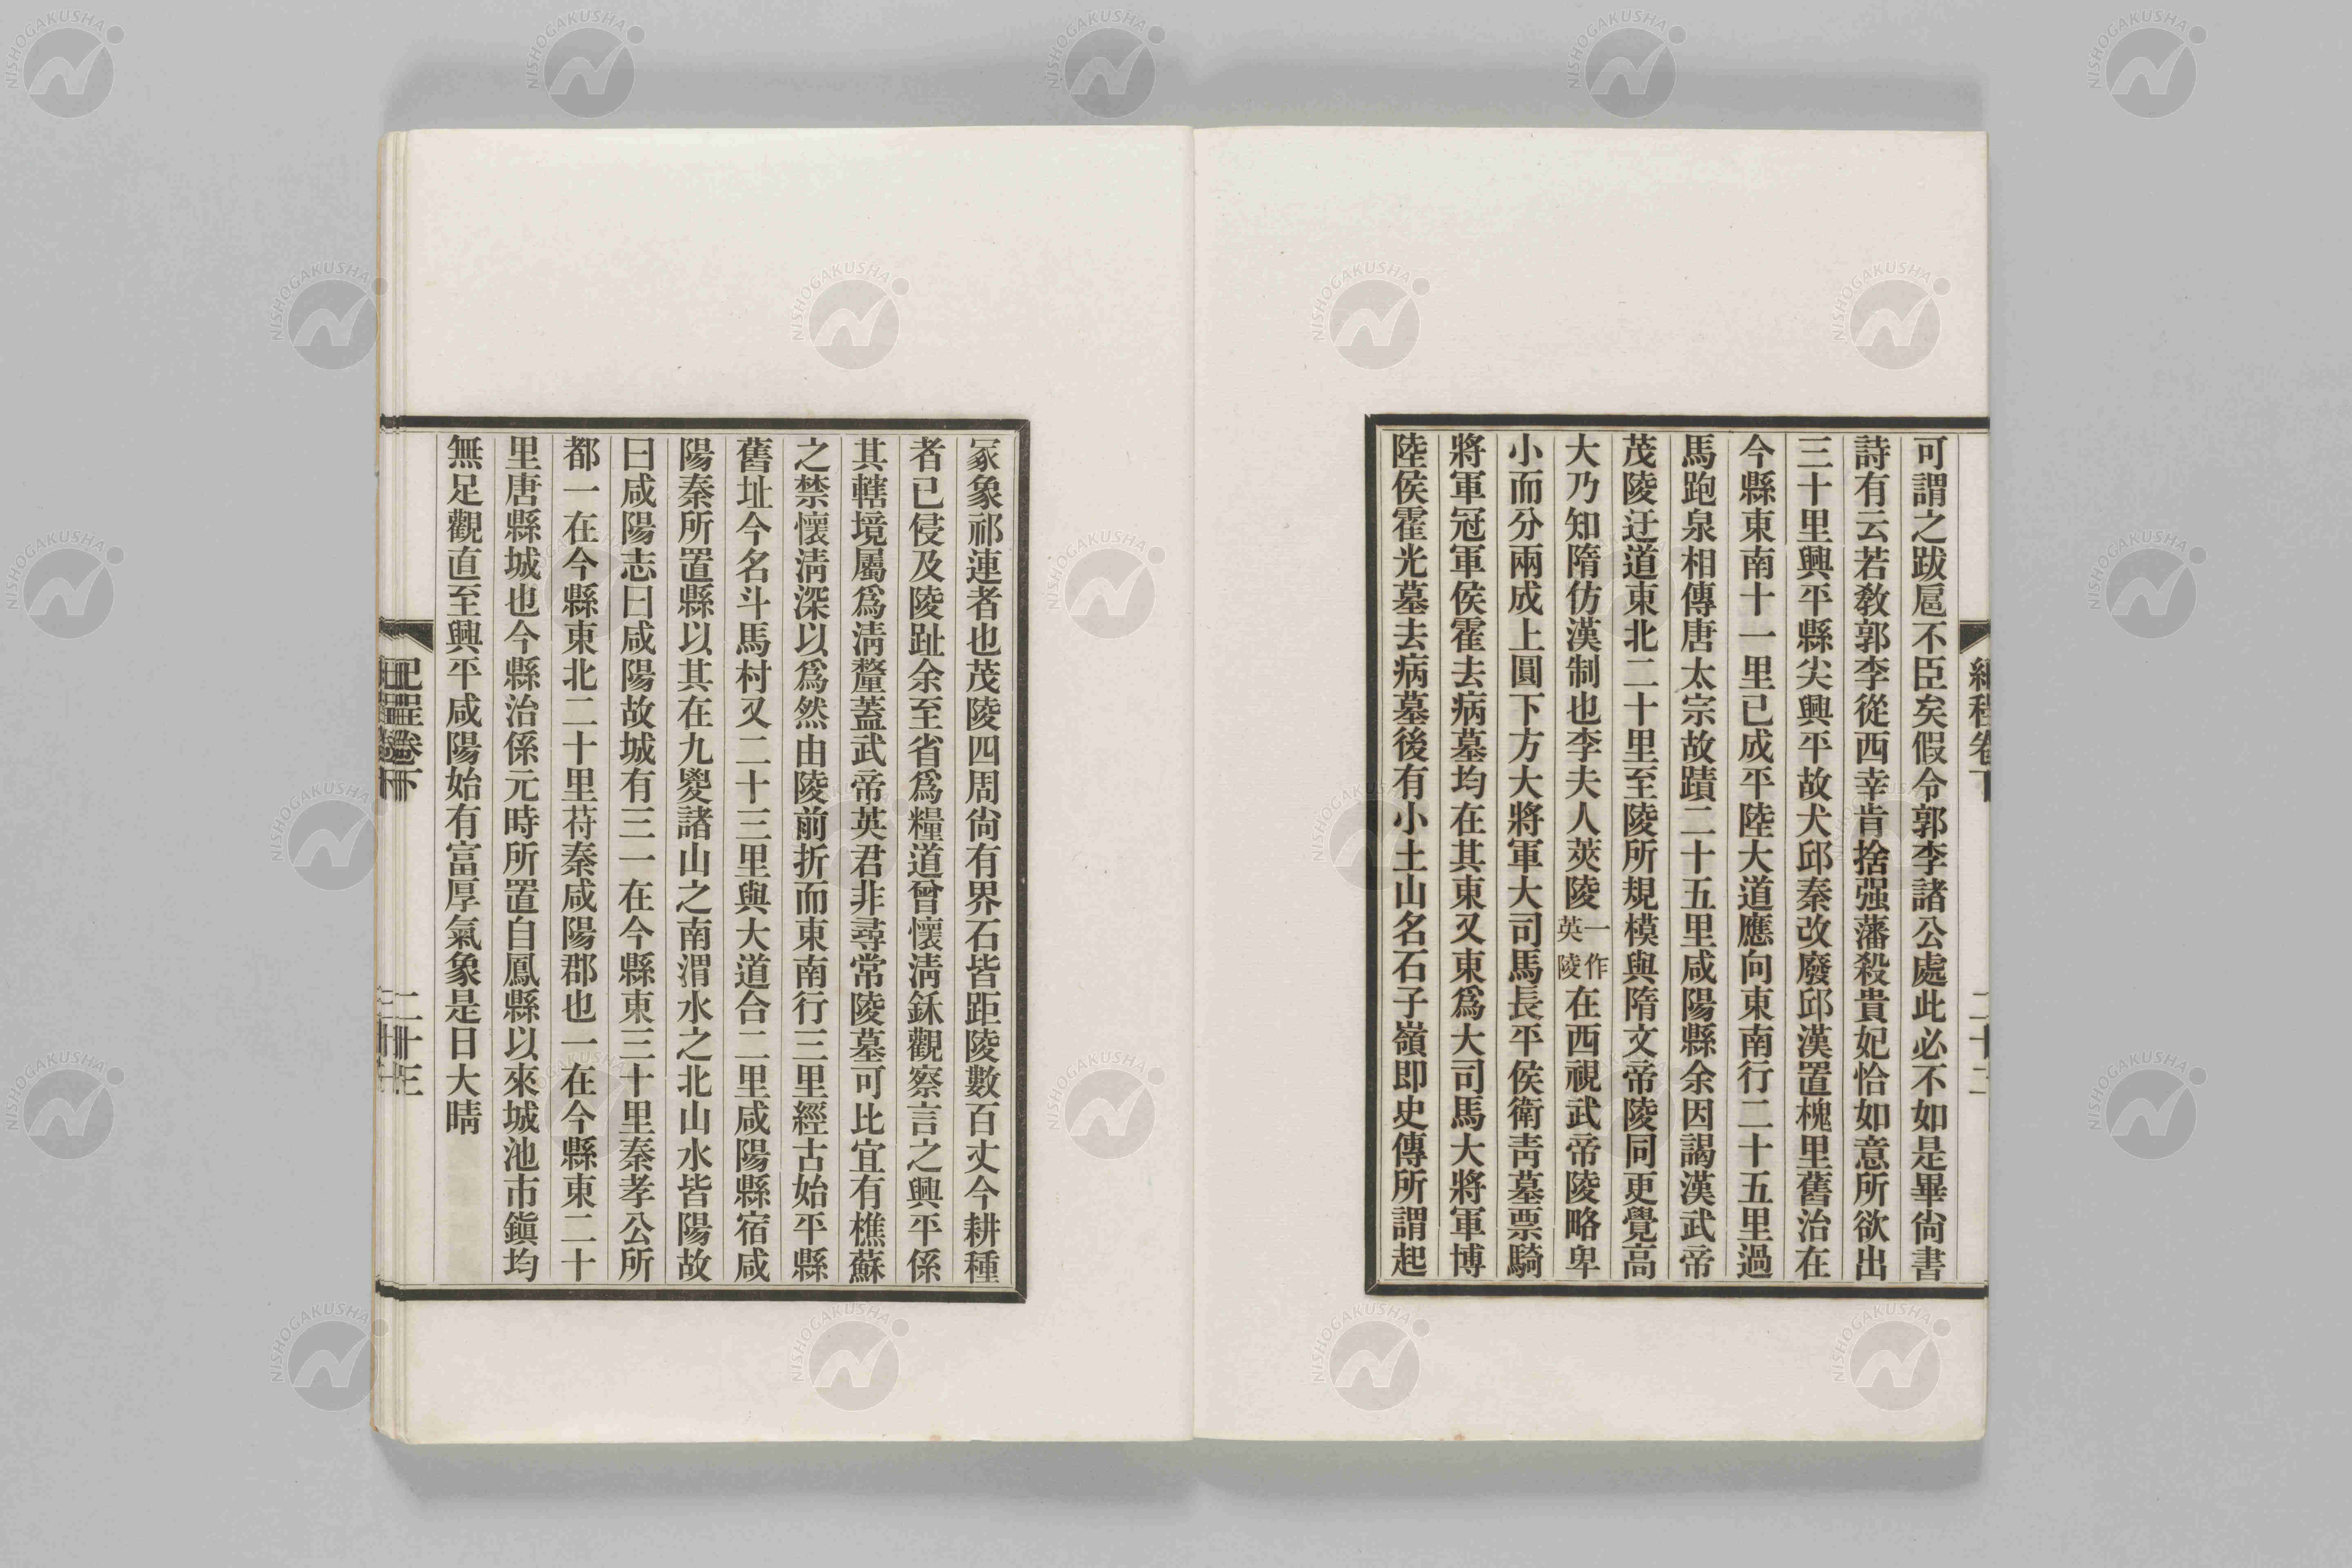 可謂之跋扈不臣矣假令郭李諸公處此必不如是畢尙書
詩有云若敎郭李從西幸肯捨强藩殺貴妃恰如意所欲出
三十里興平縣尖興平故犬邱秦改廢邱漢置槐里舊治在
今縣東南十一里已成平陸大道應向東南行二十五里過
馬跑泉相傳唐太宗故蹟二十五里咸陽縣余因謁漢武帝
茂陵迂道東北二十里至陵所規模與隋文帝陵同更覺高
大乃知隋仿漢制也李夫人莢陵一作英陵在西視武帝陵略卑
小而分兩成上圓下方大將軍大司馬長平侯衛靑墓票騎
將軍冠軍侯霍去病墓均在其東又東爲大司馬大將軍博
陸侯霍光墓去病墓後有小土山名石子嶺即史傳所謂起
冢象祁連者也茂陵四周尙有界石皆距陵數百丈今耕種
者已侵及陵趾余至省爲糧道曾懷淸鉌觀察言之興平係
其轄境屬爲淸釐蓋武帝英君非尋常陵墓可比宜有樵蘇
之禁懷淸深以爲然由陵前折而東南行三里經古始平縣
舊址今名斗馬村又二十三里與大道合二里咸陽縣宿咸
陽秦所置縣以其在九嵏諸山之南渭水之北山水皆陽故
曰咸陽志曰咸陽故城有三一在今縣東三十里秦孝公所
都一在今縣東北二十里苻秦咸陽郡也一在今縣東二十
里唐縣城也今縣治係元時所置自鳳縣以來城池市鎭均
無足觀直至興平咸陽始有富厚氣象是日大晴
紀程卷下
二十三
NISHOGAKUSHA